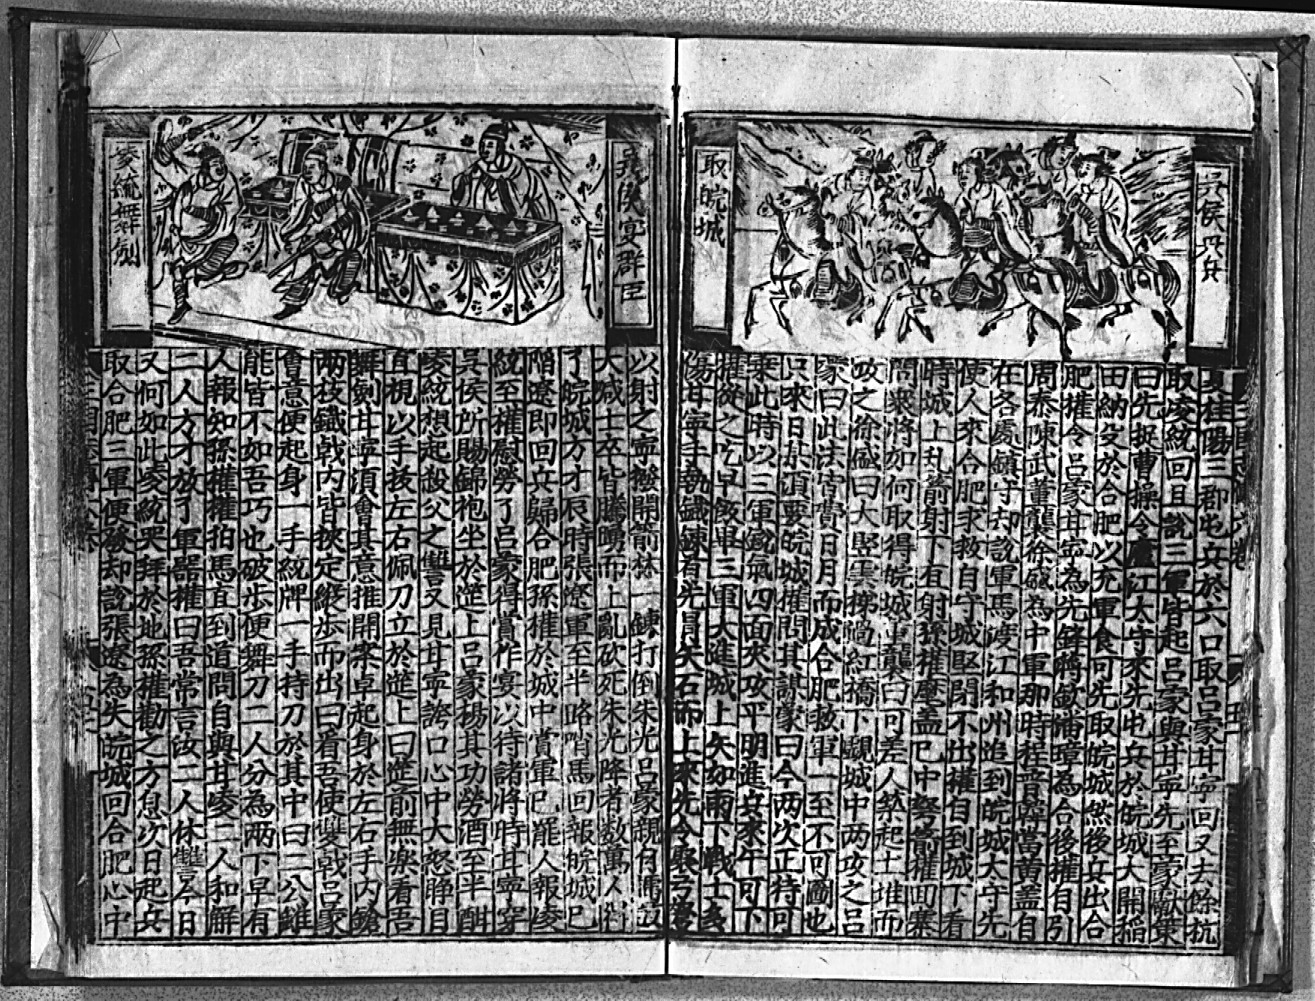 吳侯興兵
取皖城
夏桂陽三郡屯兵於六口取呂蒙甘寧回又去餘杭
取凌統回且說三軍皆起呂蒙與甘寧先至蒙獻策
曰先捉曹操令廬江太守朱光屯兵於皖城大開稻
田納穀於合肥以充軍食可先取皖城然後兵出合
肥權令呂蒙甘寧為先鋒蔣欽潘璋為合後權自引
周泰陳武董襲徐盛為中軍那時程普韓當黃蓋自
在各處鎮守却說軍馬渡江和州追到皖城太守先
使人來合肥求救自守城堅閉不出權自到城下看
時城上乱箭射下有射孫權麾盖已中弩箭權回寨
問衆將如何取得皖城董襲曰可差人築起土堆而
攻之徐盛曰大竪雲梯過紅橋下覷城中而攻之呂
蒙曰此法皆費日月而成合肥救軍一至不可圖也
只來日某須要皖城權問其謀蒙曰今两次正待可
乘此時以三軍銳氣四面夾攻平明進兵來午可下
權從之吃早飯畢三軍大進城上矢如雨下戰士多
傷甘寧手執鐵鍊有先冒矢石而上朱光令衆弓弩
吳侯宴群臣
凌統舞劍
以射之寧撥開箭林一鍊打倒朱光呂蒙親自擂鼓
大喊士卒皆騰踴而上亂砍死朱光降者数萬人得
了皖城方才辰時張遼軍至半路哨馬回報皖城已
陷遼即回兵歸合肥孫權於城中賞軍已罷人報凌
統至權慰勞了呂蒙得賞作宴以待諸將時甘寧穿
吳侯所賜錦袍坐於筵上呂蒙揚其功勞酒至半酣
凌統想起殺父之讐又見甘寧誇口心中大怒睜目
直視以手拔左右佩刀立於筵上曰筵前無楽看吾
舞劍甘寧須會其意推開案卓起身於左右手內鎗
两枝鐵戟內皆挾定縱步而出曰看吾使雙戟呂蒙
會意便起身一手統牌一手持刀於其中曰二公雖
能皆不如吾巧也破步便舞刀二人分為兩下早有
人報知孫權權拍馬直到道問自與甘凌二人和解
二人方才放了軍器權曰吾常言汝二人休讐今日
又何如此凌統哭拜於地孫權勸之方息次日起兵
取合肥三軍便發却說張遼為失皖城回合肥心中